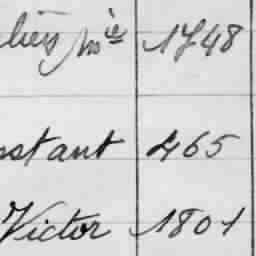 liers, mie 1748
nstant 465
Victor 1801